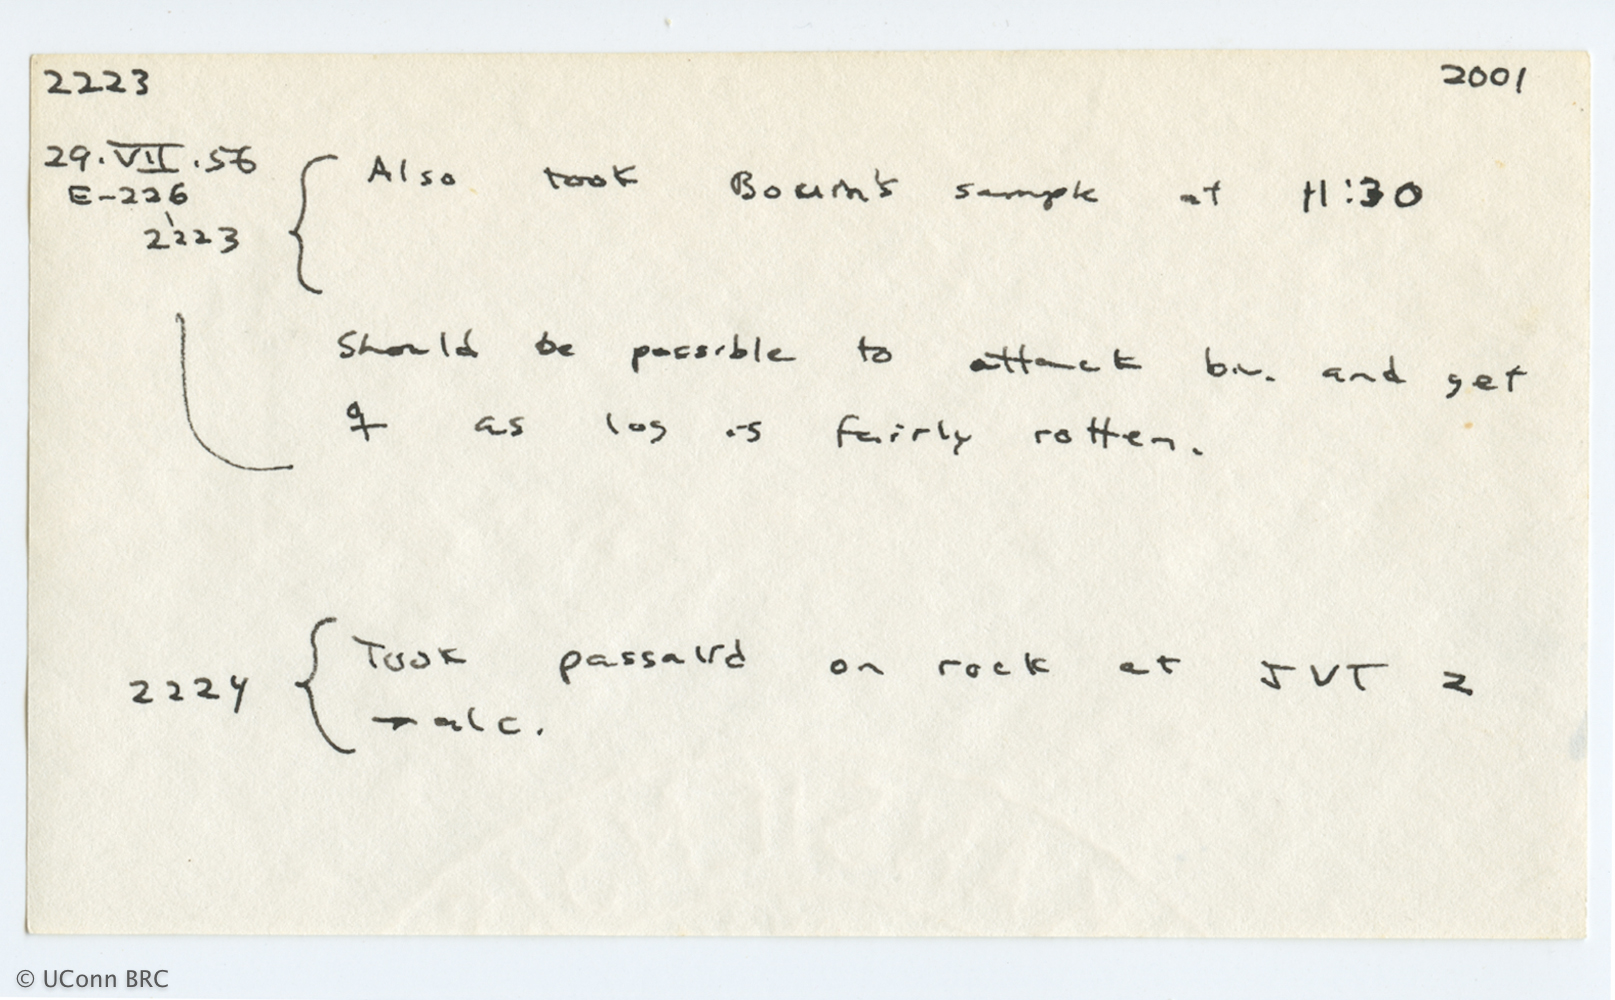 2223 2001
29.VII.56 Also took sample at 11:30
E-226
2223
Should be possible to attack b.v. and get
♀ as log is fairly rotten.
2224 Took passalid on rock at JVT 2
→ alc.
© UConn BRC